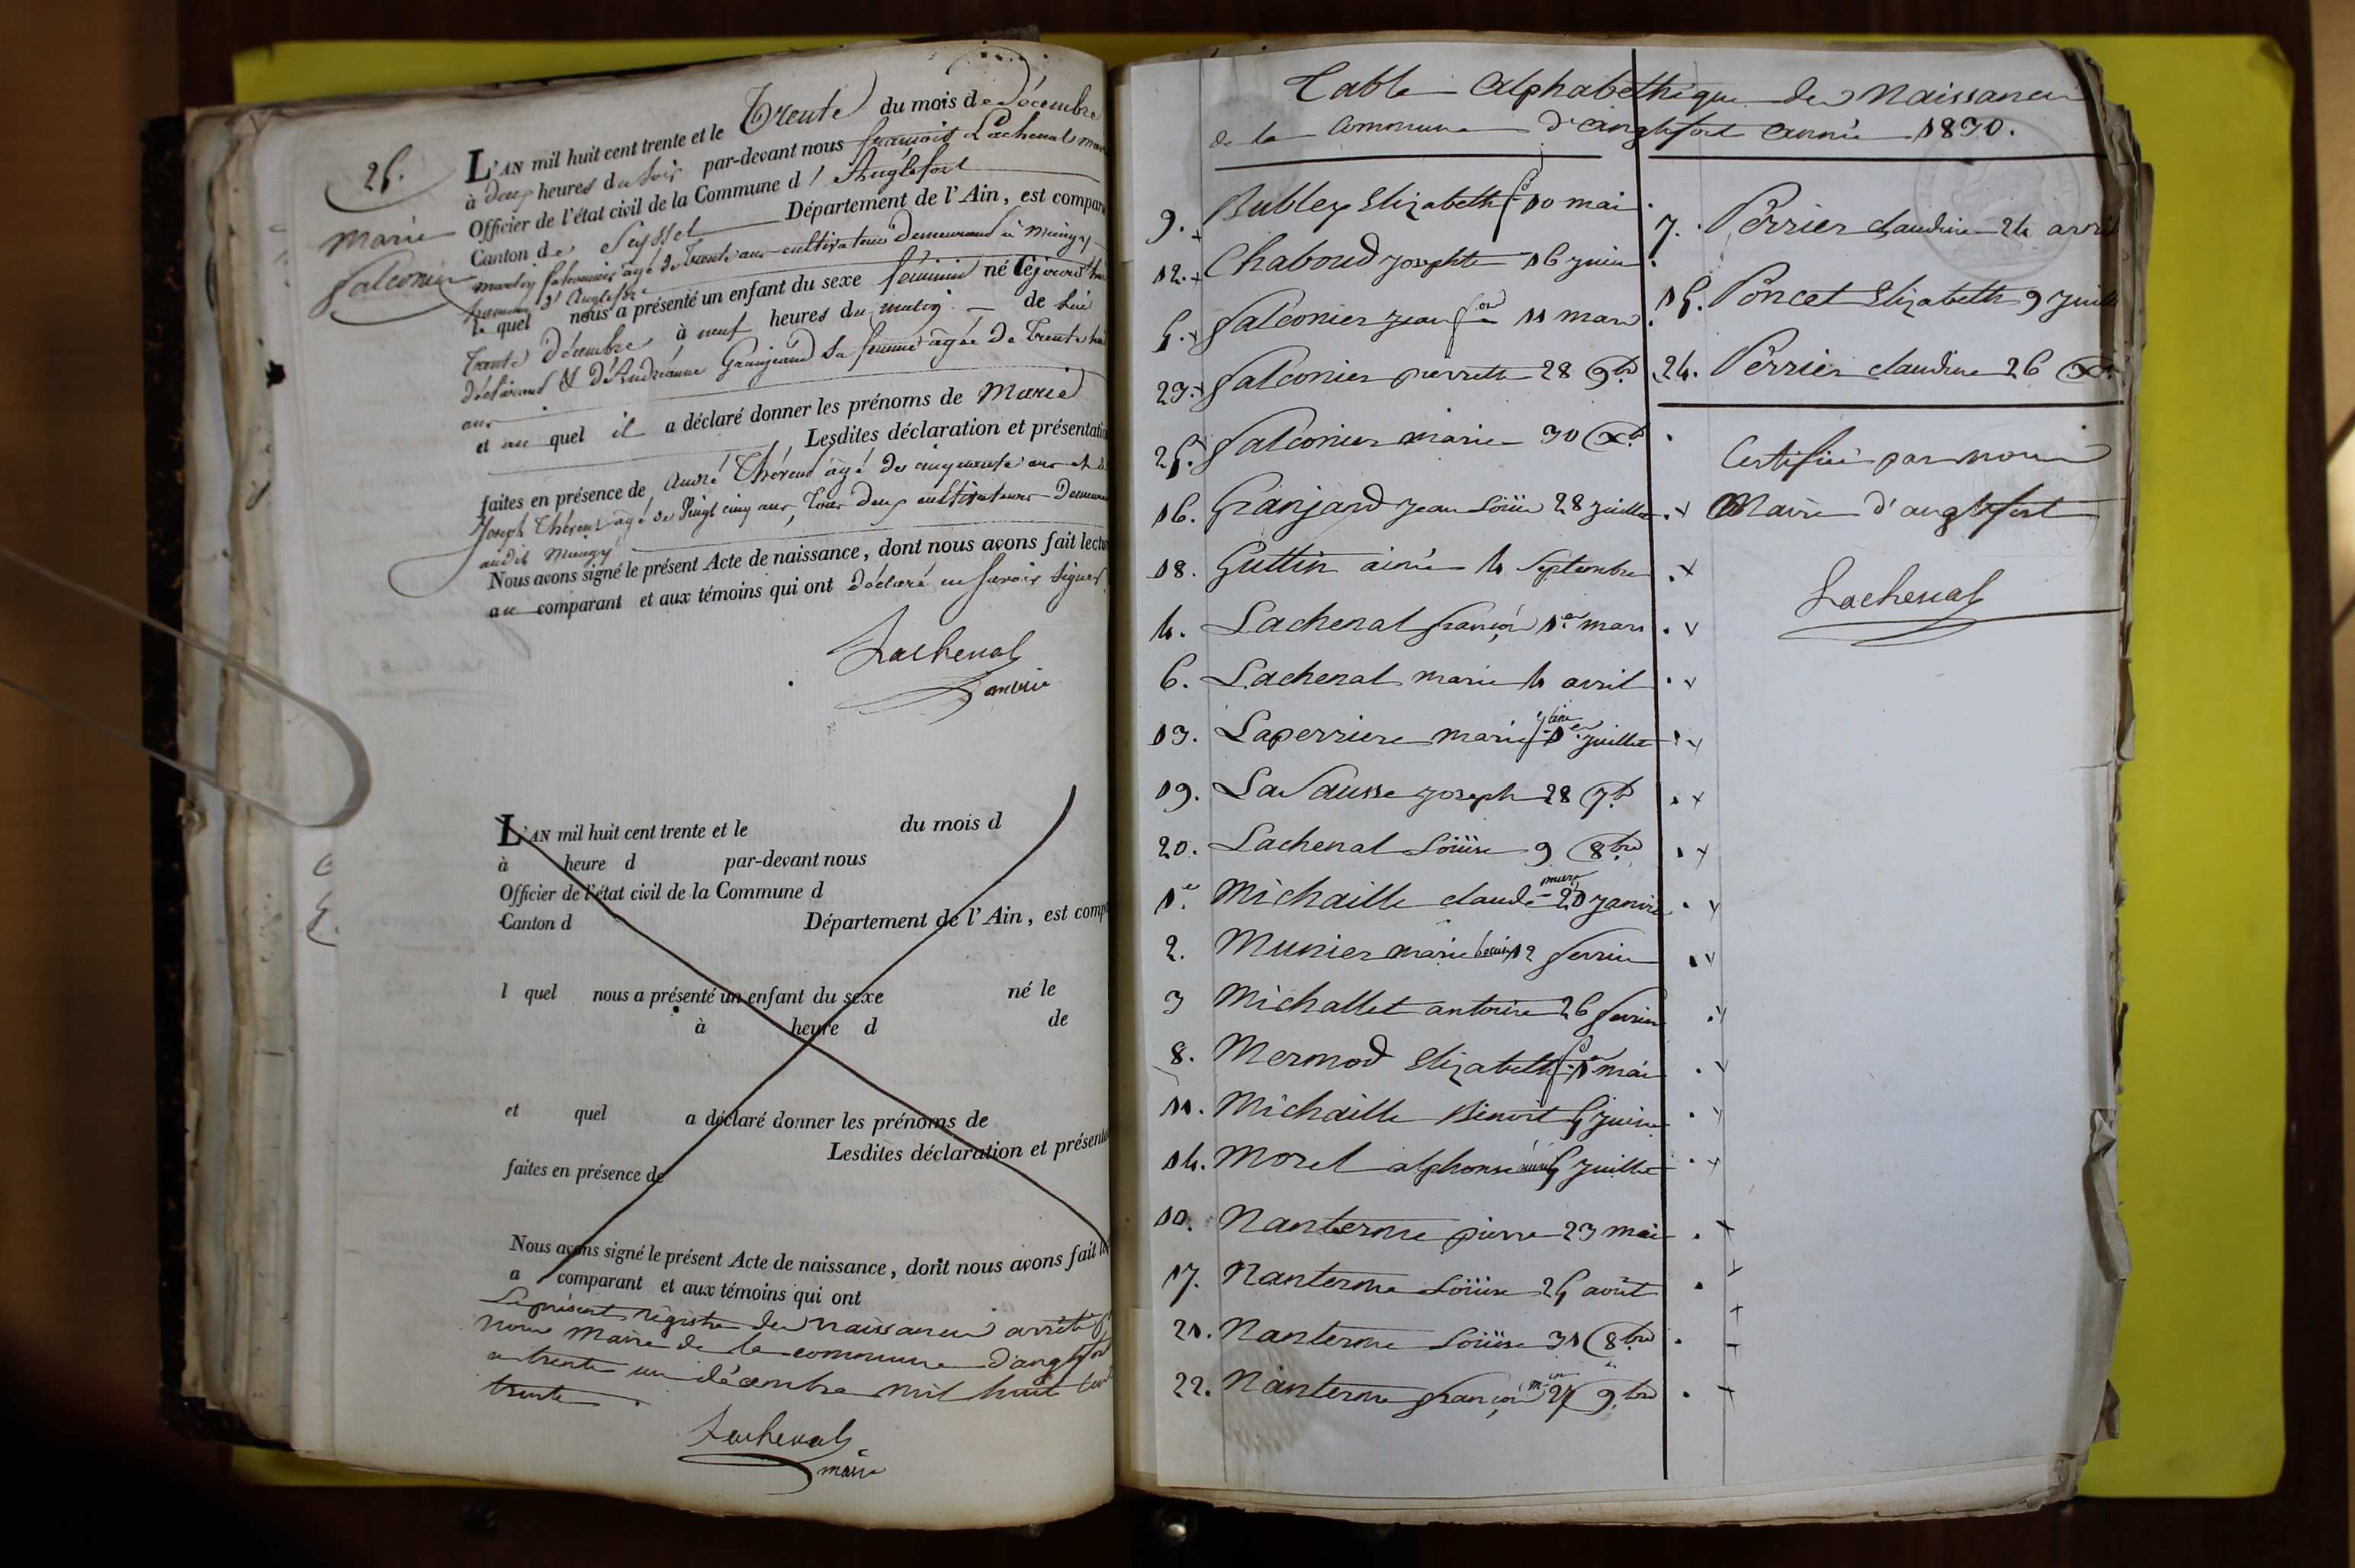 25.
Marie
falconier
L'AN mil huit cent trente et le Trente du mois de Décembre
à deux heures du soir par-devant nous françois Lachenal maire
Officier de l'état civil de la Commune d'Anglefort
Canton de Seyssel Département de l'Ain, est comparu
martin falconnier âgé de Trente ans cultivateur Demeurant à
le quel nous a présenté un enfant du sexe féminin né cejourd'hui
Trente Décembre à neuf heures du matin de lui
déclarant & de Andréanne Granjeand sa femme âgée de Trente
ans
et au quel il a déclaré donner les prénoms de Marie
Lesdites déclaration et présentation
faites en présence de André Théreus âgé de cinquante ans et de
Joseph Théreus âgé de Vingt cinq ans, Tous deux cultivateurs Demeurant
audit
Nous avons signé le présent Acte de naissance, dont nous avons fait lecture
au comparant et aux témoins qui ont déclaré ne savoir signer
Lachenal
maire
L'AN mil huit cent trente et le du mois d
à heure d par-devant nous
Officier de l'état civil de la Commune d
Canton d Département de l'Ain, est comp
l quel nous a présenté un enfant du sexe né le
à heure d de
et quel a déclaré donner les prénoms de
Lesdites déclaration et présenta
faites en présence de
Nous avons signé le présent Acte de naissance, dont nous avons fait le
a comparant et aux témoins qui ont
Le présent Régistre des naissances arrêté p
nous Maire de la commune d'anglefort
a trente un décembre mil huit cent
trente.
Lachenal
maire
Table Alphabethique des Naissances
de la Commune d'anglefort année 1830.
9. Bubley Elizabeth fse 10 mai
12. Chaboud josephte 16 juin
5. falconier jean fois 11 mars
23. falconier pierrette 28 9bre
25. falconier marie 30 Xbre
16. Granjard jean Loüis 28 juillet
18. Guttin aimé 4 Septembre
4. Lachenal françois 1er mars
6. Lachenal marie 4 avril
13. Laperriere marie 1er juillet
19. La Sausse joseph 28 7bre
20. Lachenal Loüise 9 8bre
1er Michaille claude marie 20 janvier
2. Munier marie 12 fevrier
3 Michallet antoine 26 fevrier
8. Mermod Elizabeth fse 1er mai
11. Michaille Benoit 5 juin
14. Morel alphonse 5 juillet
10. Nanterme pierre 23 mai
17. Nanterme Loüise 25 août
21. Nanterme Loüise 31 8bre
22. Nanterme françois 27 9bre
7. Perrier claudine 24 avril
15. Poncet Elizabeth 9 juillet
24. Perrier claudine 26 Xbre
Certifié par nous
Maire d'anglefort
Lachenal